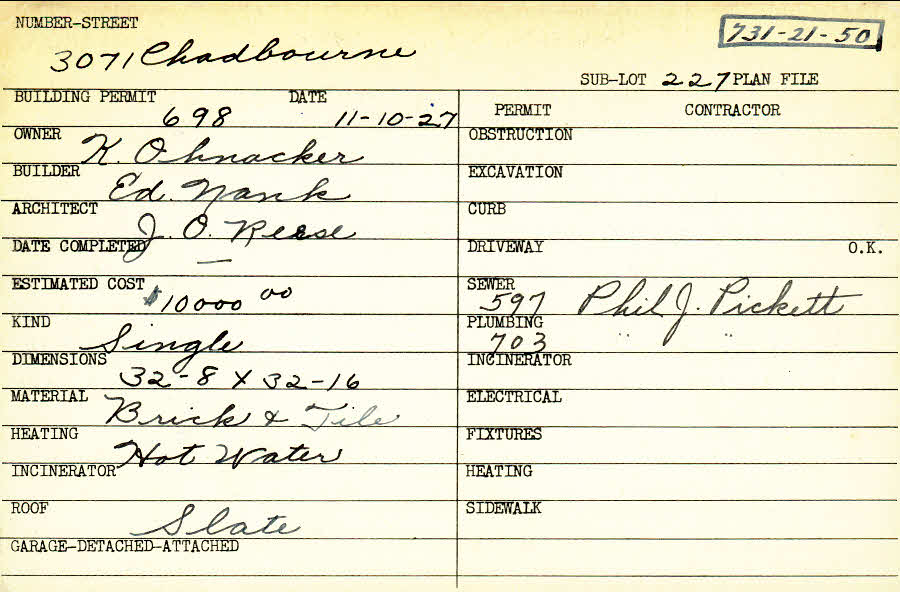 NUMBER-STREET
731-21-50
3071 Chadbourne
SUB-LOT 227 PLAN FILE
BUILDING PERMIT 698 DATE 11-10-27
PERMIT CONTRACTOR
OWNER K. Ohnacker
OBSTRUCTION
BUILDER Ed. Nank
EXCAVATION
ARCHITECT J. O. Reese
CURB
DATE COMPLETED —
DRIVEWAY O.K.
ESTIMATED COST $10000 00
SEWER 597 Phil J. Pickett
KIND Single
PLUMBING 703 " "
DIMENSIONS 32-8 X 32-16
INCINERATOR
MATERIAL Brick & Tile
ELECTRICAL
HEATING Hot Water
FIXTURES
INCINERATOR
HEATING
ROOF Slate
SIDEWALK
GARAGE-DETACHED-ATTACHED